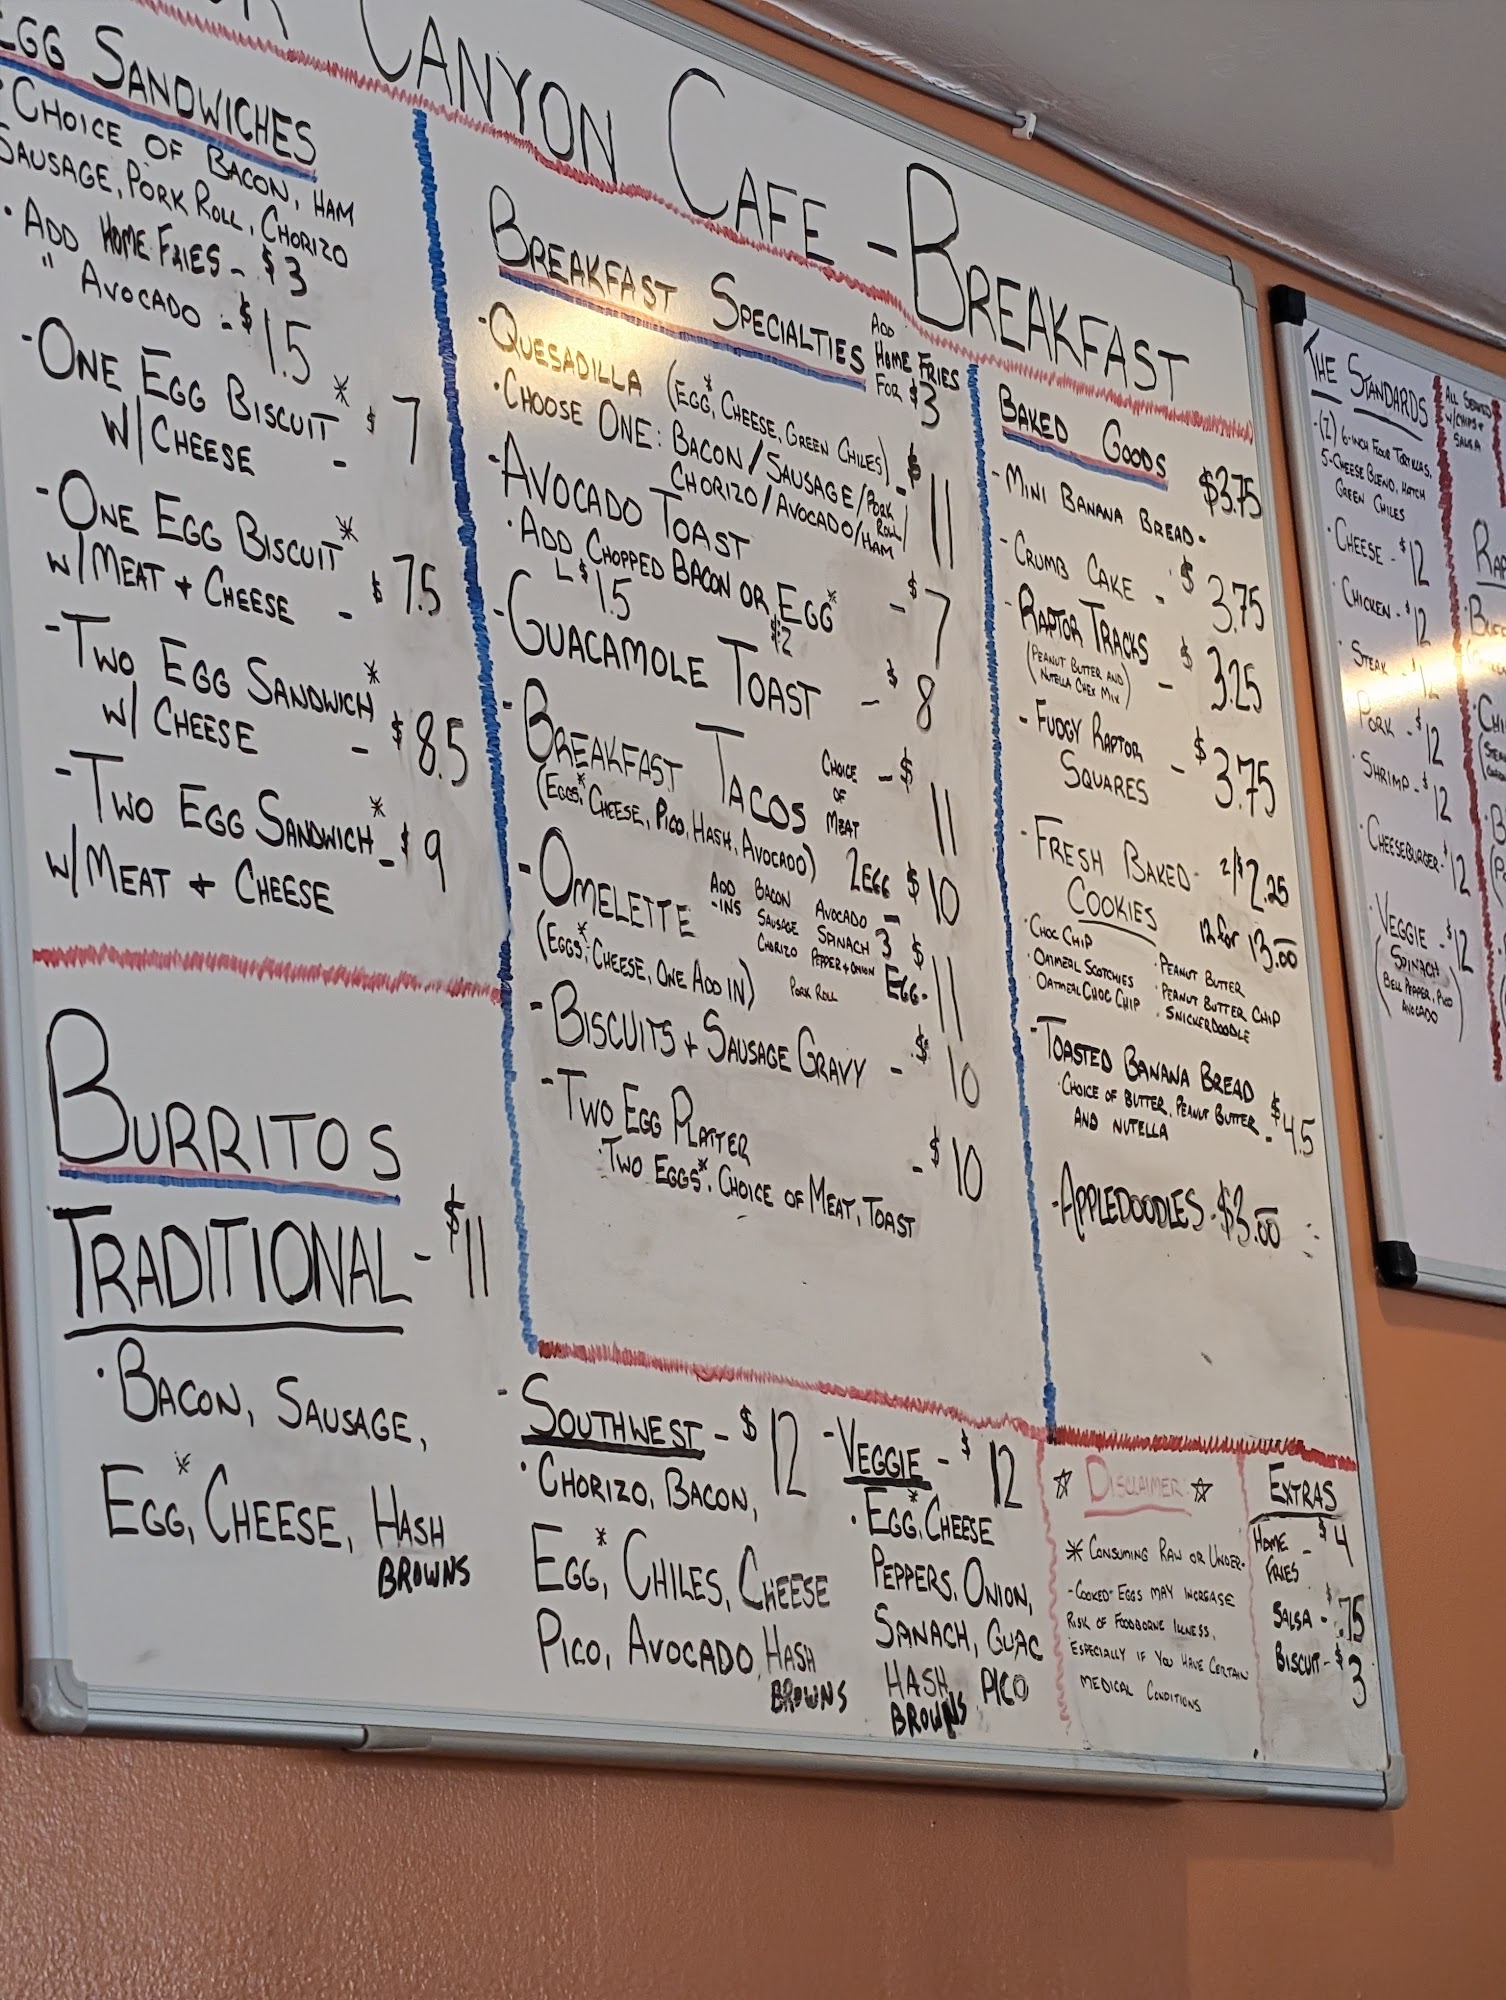 CANYON CAFE - BREAKFAST
EGG SANDWICHES
• CHOICE OF BACON, HAM
SAUSAGE, PORK ROLL, CHORIZO
• ADD HOME FRIES - $3
" AVOCADO - $1.5
- ONE EGG BISCUIT*
W/ CHEESE - $7
- ONE EGG BISCUIT*
W/ MEAT + CHEESE - $7.5
- TWO EGG SANDWICH*
W/ CHEESE - $8.5
- TWO EGG SANDWICH* - $9
W/ MEAT + CHEESE
BREAKFAST SPECIALTIES
ADD
HOME FRIES
FOR $3
- QUESADILLA (EGG*, CHEESE, GREEN CHILES) - $11
• CHOOSE ONE: BACON/SAUSAGE/PORK ROLL/
CHORIZO/AVOCADO/HAM
- AVOCADO TOAST - $7
• ADD CHOPPED BACON OR EGG*
$1.5 $2
- GUACAMOLE TOAST - $8
- BREAKFAST TACOS CHOICE OF MEAT - $11
(EGGS*, CHEESE, PICO, HASH, AVOCADO)
- OMELETTE 2 EGG - $10
3 EGG - $11
(EGGS*, CHEESE, ONE ADD IN)
ADD -INS
BACON AVOCADO
SAUSAGE SPINACH
CHORIZO PEPPER + ONION
PORK ROLL
- BISCUITS + SAUSAGE GRAVY - $10
- TWO EGG PLATTER - $10
• TWO EGGS*, CHOICE OF MEAT, TOAST
BAKED GOODS
- MINI BANANA BREAD - $3.75
- CRUMB CAKE - $3.75
- RAPTOR TRACKS - $3.25
(PEANUT BUTTER AND
NUTELLA CHEX MIX)
- FUDGY RAPTOR
SQUARES - $3.75
- FRESH BAKED - 2/$2.25
COOKIES 12 for 13.00
• CHOC CHIP
• OATMEAL SCOTCHIES
• OATMEAL CHOC CHIP
• PEANUT BUTTER
• PEANUT BUTTER CHIP
• SNICKERDOODLE
- TOASTED BANANA BREAD
• CHOICE OF BUTTER, PEANUT BUTTER - $4.5
AND NUTELLA
- APPLEDOODLES - $3.00
BURRITOS
TRADITIONAL - $11
• BACON, SAUSAGE,
EGG*, CHEESE, HASH
BROWNS
- SOUTHWEST - $12
• CHORIZO, BACON,
EGG*, CHILES, CHEESE
PICO, AVOCADO, HASH
BROWNS
- VEGGIE - $12
• EGG*, CHEESE
PEPPERS, ONION,
SANACH, GUAC
HASH BROWNS, PICO
☆ DISCLAIMER: ☆
* CONSUMING RAW OR UNDER-
-COOKED- EGGS MAY INCREASE
RISK OF FOODBORNE ILLNESS,
ESPECIALLY IF YOU HAVE CERTAIN
MEDICAL CONDITIONS
EXTRAS
HOME FRIES - $4
SALSA - $.75
BISCUIT - $3
THE STANDARDS
- (2) 6-INCH FLOUR TORTILLAS,
5-CHEESE BLEND, HATCH
GREEN CHILES
• CHEESE - $12
• CHICKEN - $12
• STEAK - $12
PORK - $12
• SHRIMP - $12
• CHEESEBURGER - $12
• VEGGIE - $12
(SPINACH
BELL PEPPER, PICO
AVOCADO)
ALL SERVED
W/ CHIPS +
SALSA